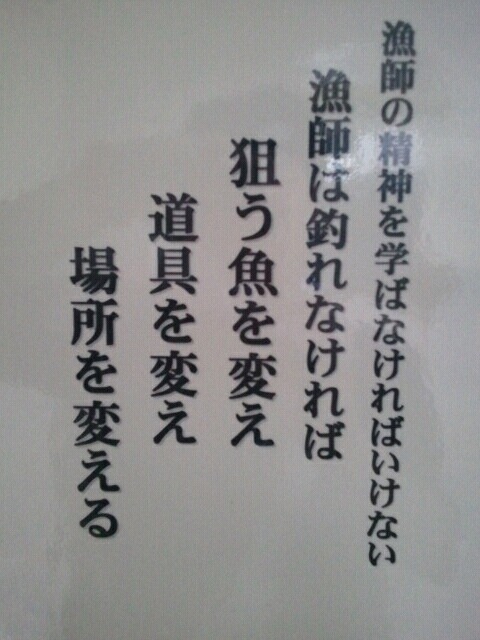 漁師の精神を学ばなければいけない
漁師は釣れなければ
狙う魚を変え
道具を変え
場所を変える